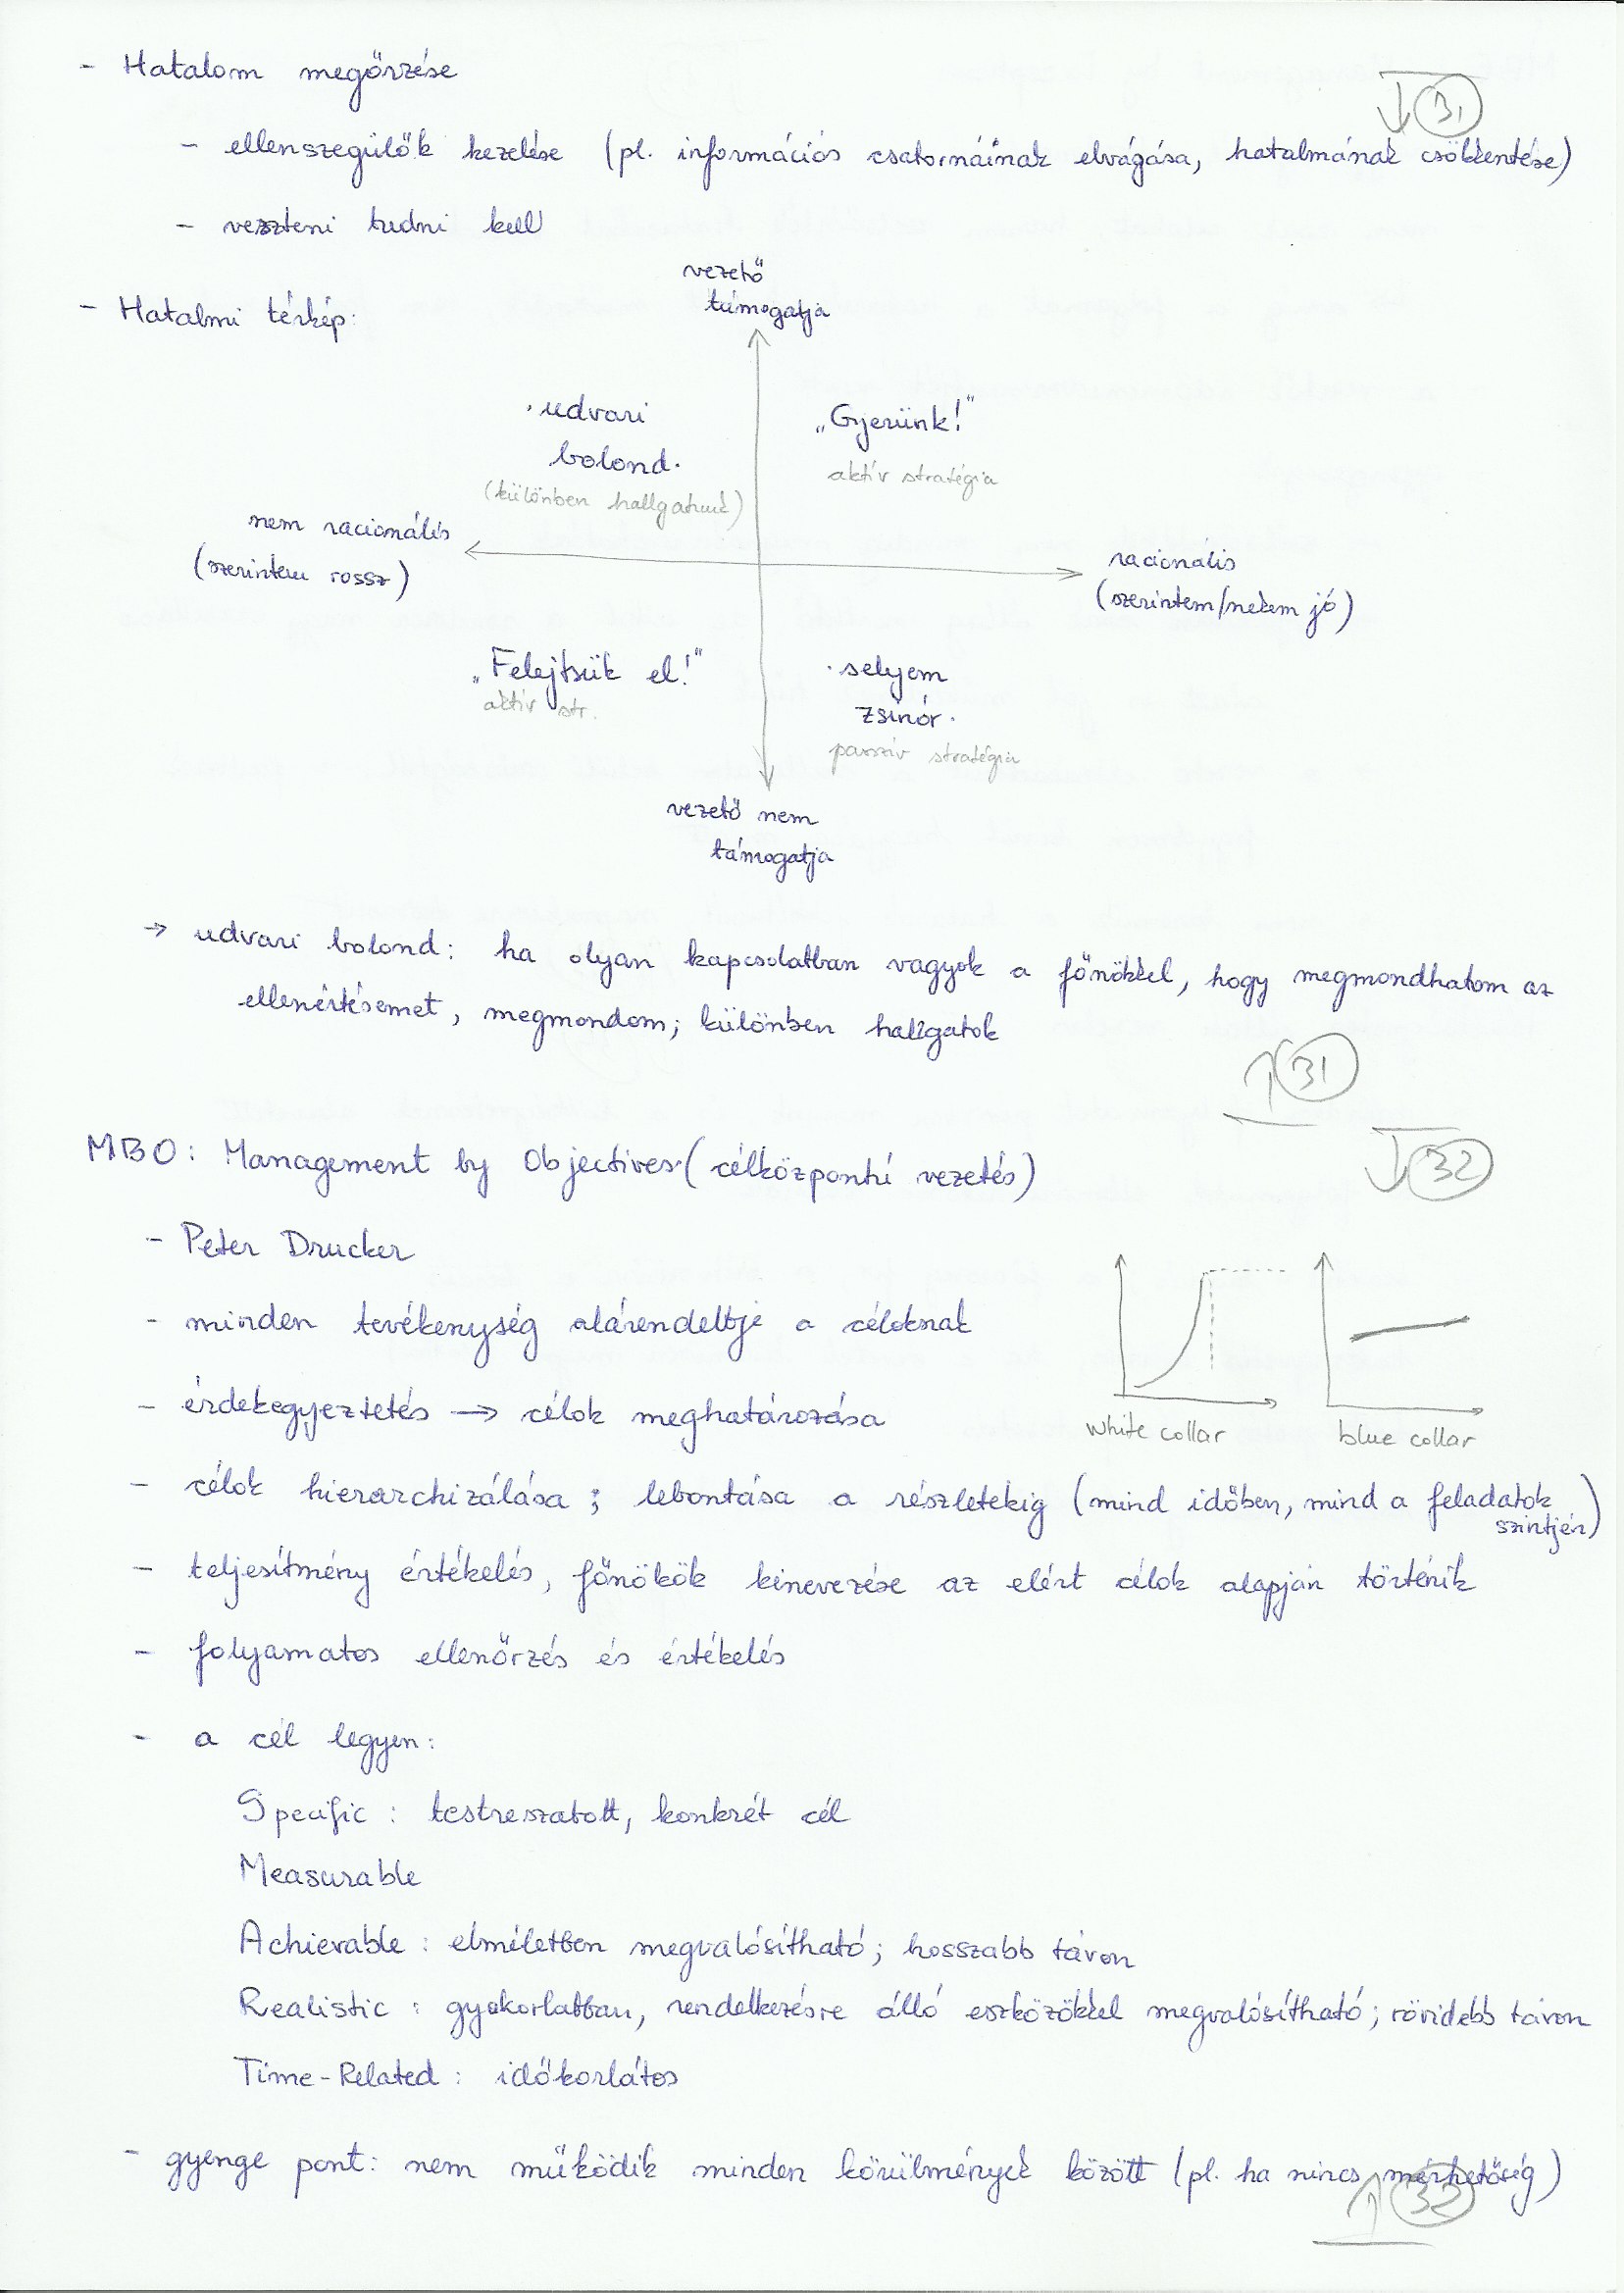 - Hatalom megőrzése
↓ 31
- ellenszegülők kezelése (pl. információs csatornáinak elvágása, hatalmának csökkentése)
- veszteni tudni kell
- Hatalmi térkép:
vezető
támogatja
· udvari
bolond ·
(különben hallgatunk)
„Gyerünk!”
aktív stratégia
nem racionális
(szerintem rossz)
racionális
(szerintem/nekem jó)
„Felejtsük el!”
aktív str.
· selyem
zsinór ·
passzív stratégia
vezető nem
támogatja
→ udvari bolond: ha olyan kapcsolatban vagyok a főnökkel, hogy megmondhatom az
ellenértésemet, megmondom; különben hallgatok
↑ 31
MBO: Management by Objectives (célközpontú vezetés)
↓ 32
- Peter Drucker
- minden tevékenység alárendeltje a céloknak
- érdekegyeztetés → célok meghatározása
white collar
blue collar
- célok hierarchizálása; lebontása a részletekig (mind időben, mind a feladatok
szintjén)
- teljesítmény értékelés, főnökök kinevezése az elért célok alapján történik
- folyamatos ellenőrzés és értékelés
- a cél legyen:
Specific: testreszatott, konkrét cél
Measurable
Achievable: elméletben megvalósítható; hosszabb távon
Realistic: gyakorlatban, rendelkezésre álló eszközökkel megvalósítható; rövidebb távon
Time-Related: időkorlátos
- gyenge pont: nem működik minden körülmények között (pl. ha nincs mérhetőség)
↑ 32